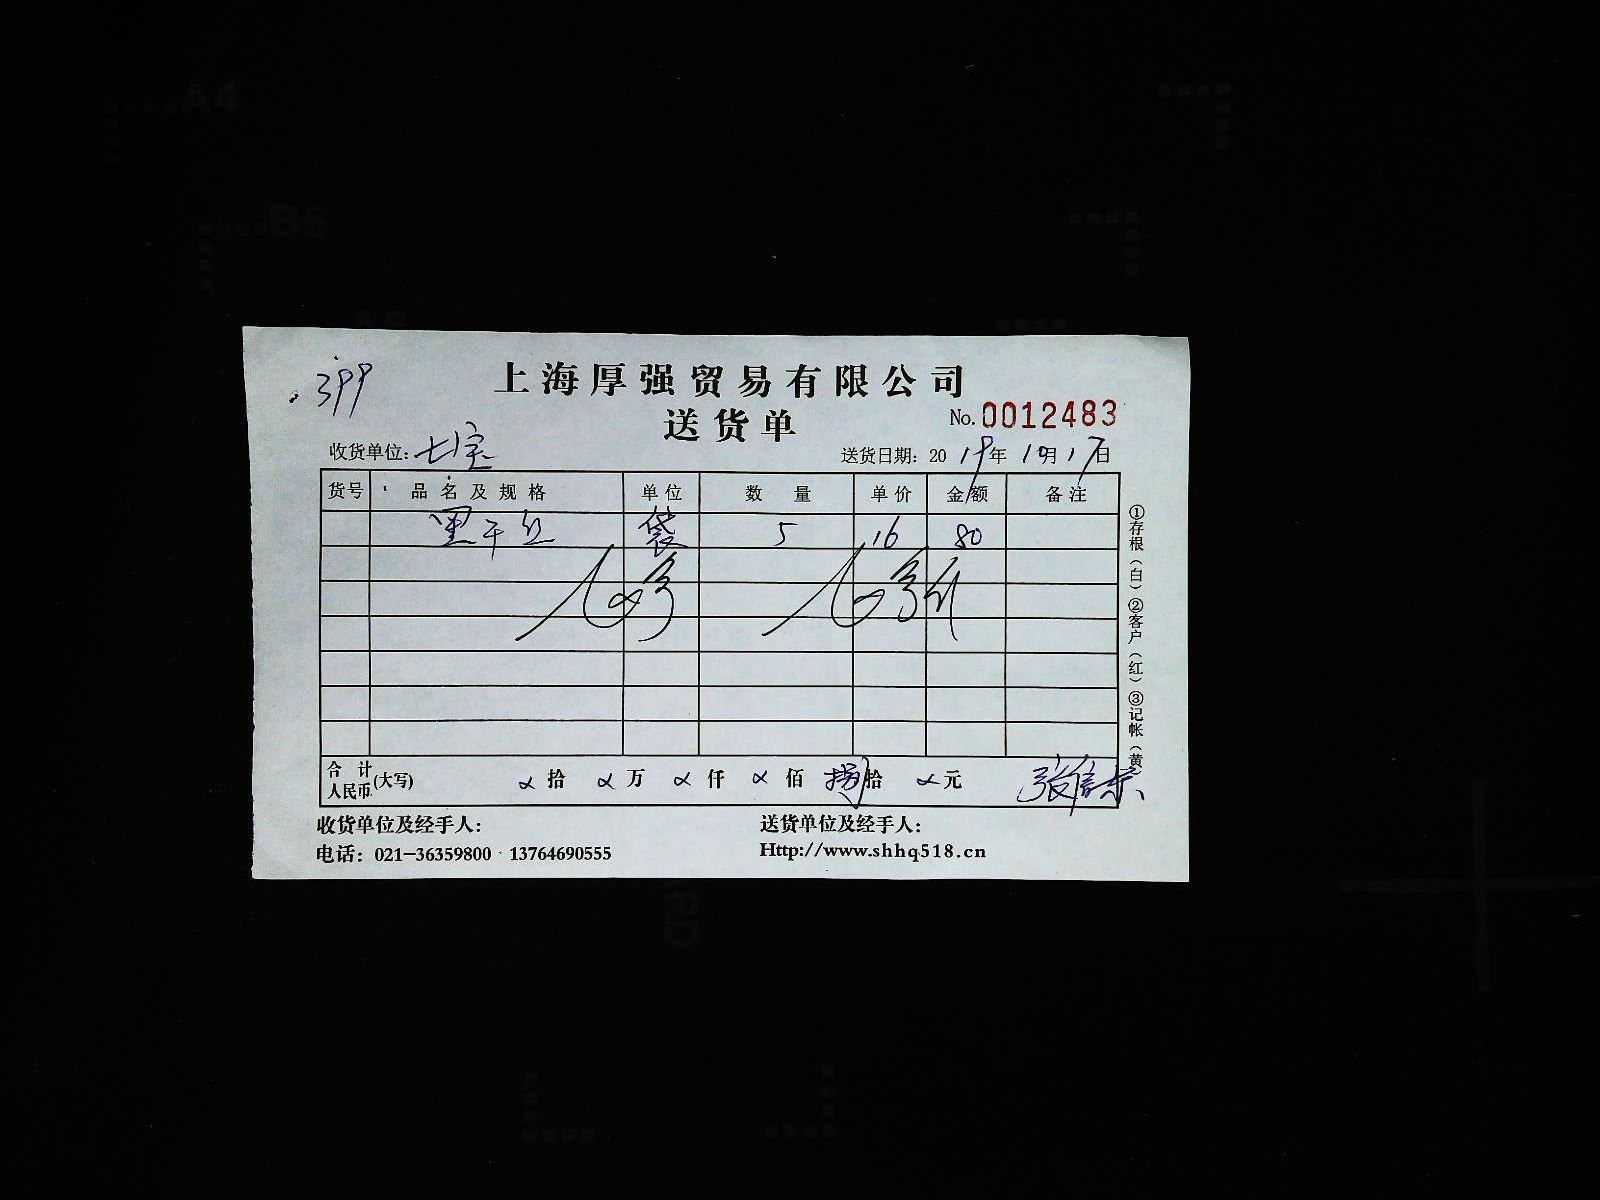 399
上海厚强贸易有限公司
送货单
No. 0012483
收货单位: 七宝
送货日期: 2019年10月17日
货号 品名及规格 单位 数量 单价 金额 备注
黑干丝 袋 5 16 80
合计人民币(大写) 拾 万 仟 佰 捌拾 元
收货单位及经手人:
送货单位及经手人:
电话: 021-36359800 13764690555
Http://www.shhq518.cn
①存根(白)②客户(红)③记帐(黄
A4
B5